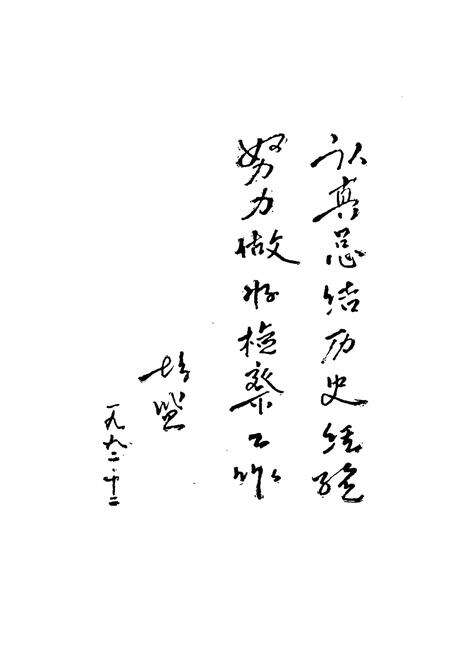 认真总结历史经验
努力做好检察工作
培盟
一九九二·十二